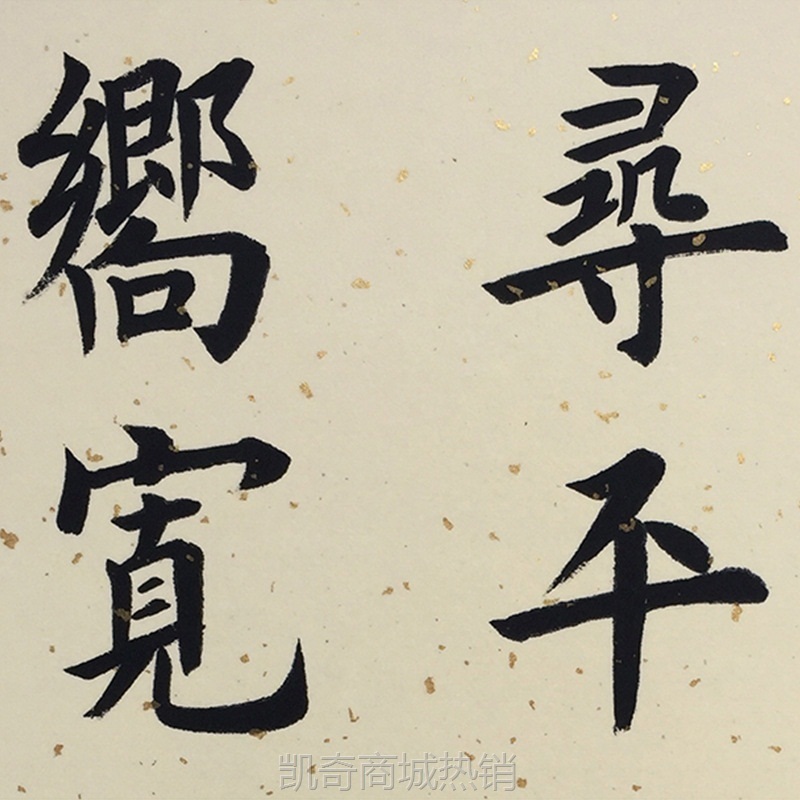 尋平
嚮寬
凯奇商城热销